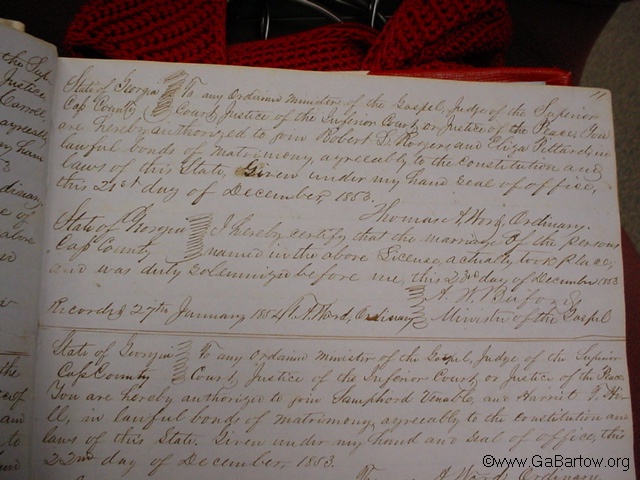 11
State of Georgia To any Ordained Minister of the Gospel, Judge of the Superior
Cass County Court, Justice of the Inferior Court, or Justice of the Peace, You
are hereby authorized to join Robert D. Rogers, and Eliza Pettard, in
lawful bonds of matrimony, agreeably to the constitution and
laws of this State, Given under my hand seal of office,
this 21st day of December, 1853.
Thomas A. Word, Ordinary.
State of Georgia I hereby certify that the marriage of the persons
Cass County named in the above License, actually took place,
and was duly solemnized before me, this 23rd day of December 1853
A. W. Buford
Minister of the Gospel
Recorded 27th January 1854 T. A. Word, Ordinary
State of Georgia To any Ordained Minister of the Gospel, Judge of the Superior
Cass County Court, Justice of the Inferior Court, or Justice of the Peace
You are hereby authorized to join Samphord Venable, and Harriet J. Hi-
ll, in lawful bonds of matrimony, agreeably to the constitution and
laws of this State. Given under my hand and seal of office, this
22nd day of December, 1853.
A. Word, Ordinary
©www.GaBartow.org